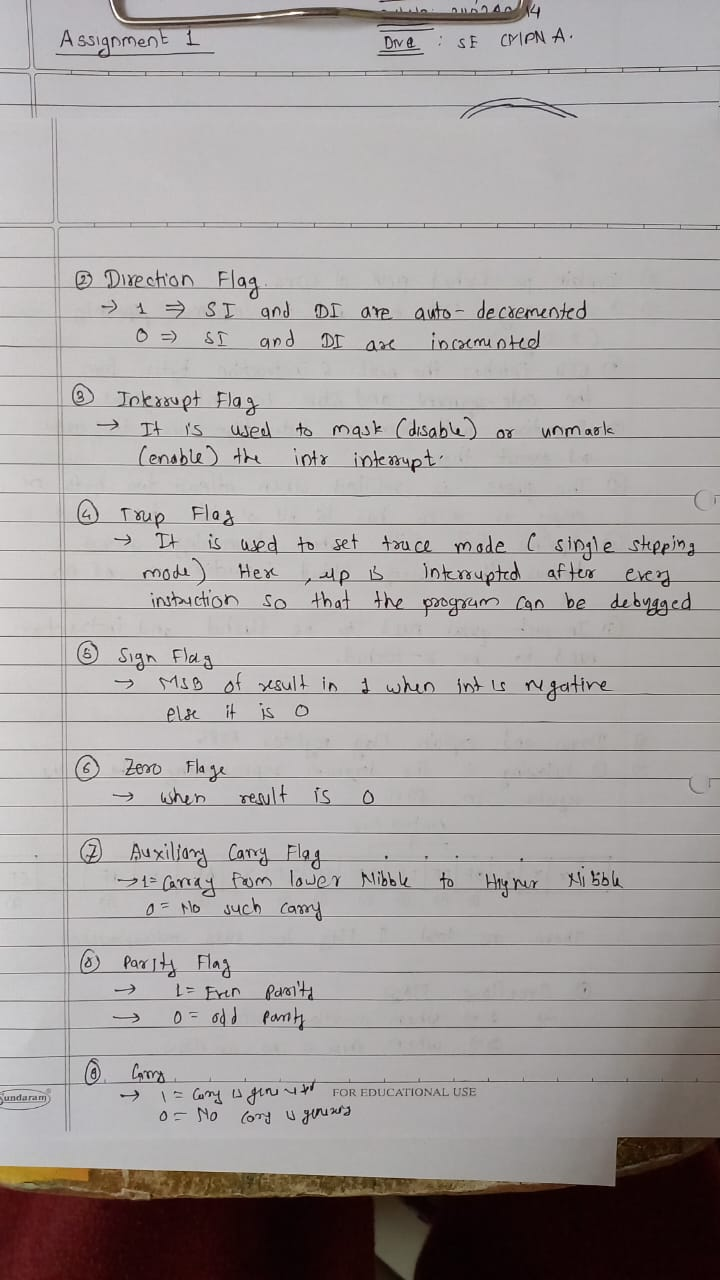 14
Assignment 1
Div : SE CMPN A.
② Direction Flag.
→ 1 ⇒ SI and DI are auto-decremented
0 ⇒ SI and DI are incremented
③ Interrupt Flag
→ It is used to mask (disable) or unmark
(enable) the intr interrupt.
④ Trap Flag
→ It is used to set trace mode ( single stepping
mode) Here , up is interrupted after every
instruction so that the program can be debugged
⑤ Sign Flag
→ MSB of result in 1 when int is negative
else it is 0
⑥ Zero Flage
→ when result is 0
⑦ Auxiliary Carry Flag
→ 1= Carray from lower Nibble to Higher Nibble
0 = No such carry
⑧ Parity Flag
→ 1= Even Parity
→ 0 = odd Parity
⑨ Carry
→ 1 = Carry is
0 = No Carry is
Sundaram
FOR EDUCATIONAL USE